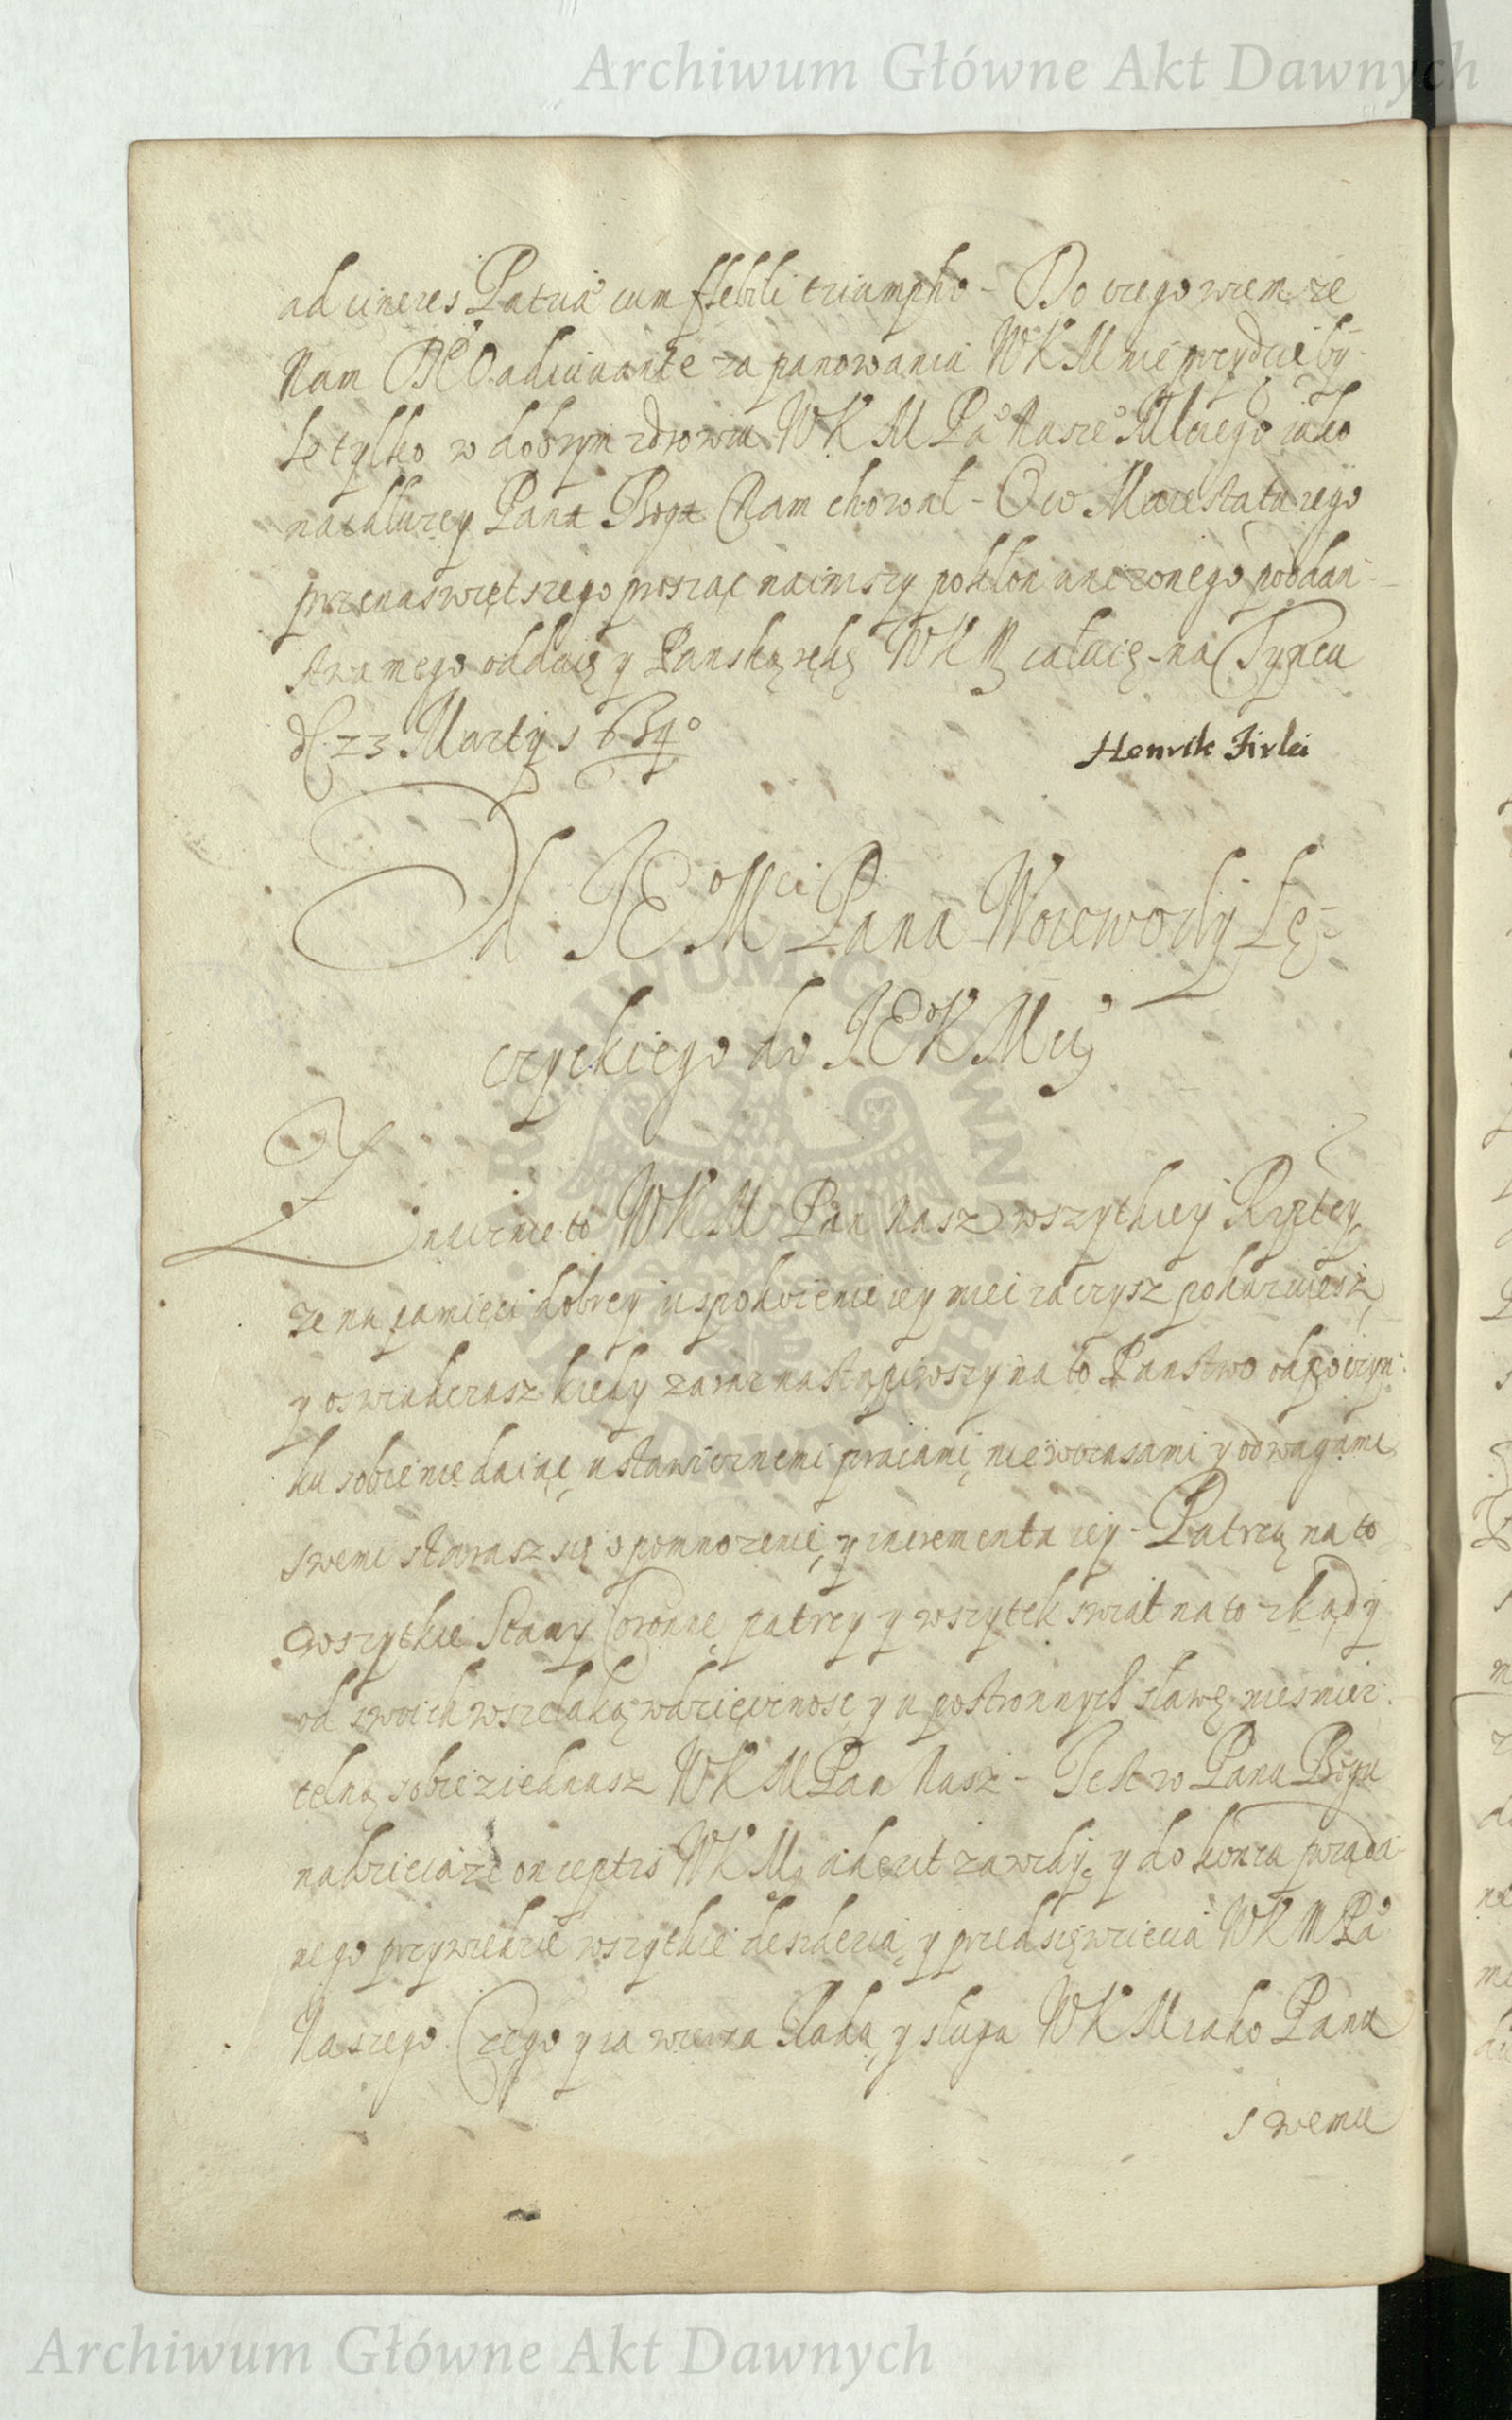 Archiwum Główne Akt Dawnych
ad cineres Patria cum flebili triumpho - Do czego wiem ze
Nam DEO adiuuante za panowania WKM nie przydzie by
le tylko w dobrym zdrowiu WKM Pa Nasze Mciego iako
nadluzey Pana Boga Nam chował - Ow Maiestatu iego
przenaswiętszego prosząc nainiszy pokłon uniżonego poddań
stwa mego oddaię y Panską rękę WKM całuię - na Tyncu
d 23 Marty 1634°
Henrik Firlei
Od JEo Mci Pana Woiewody Łę=
czyckiego do JEo K Mci
Znacznie to WKM Pan Nasz wszytkiey Rzptey
ze na pamięci dobrey uspokoienie iey miec raczysz pokazuiesz
y oswiadczasz kiedy zaraz nastąpiwszy na to Panstwo odpoczyn
ku sobie nie daiąc ustawicznemi pracami niewczasami y odwagami
swemi starasz się o pomnozenie y incrementa iey - Patrzą na to
wszytkie Stany Coronne patrzy y wszytek swiat na to zkądy
od swoich wszelaką wdzięcznosc y u postronnych sławę niesmier
telną sobie ziednasz WKM Pan Nasz - Jest w Panu Bogu
nadzieia ze onceptis WKM aderit zawzdy y do konca pożąda
nego przywiedzie wszytkie desideria y przedsięwzięcia WKM Pa
Naszego. Czego y ia wierna Rada y sługa WKM iako Panu
swemu
ARCHIWUM GŁÓWNE AKT DAWNYCH
Archiwum Główne Akt Dawnych